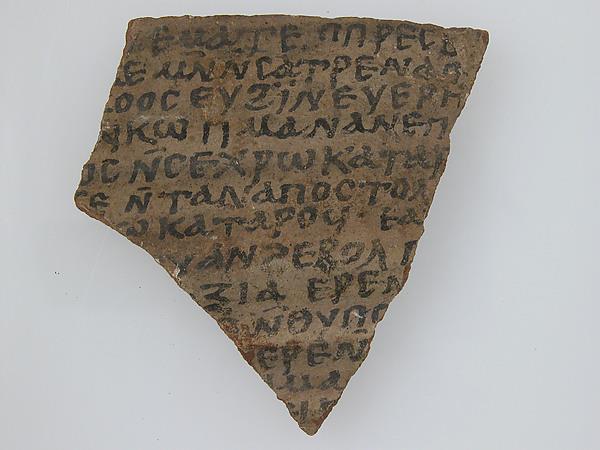 ⲉⲙⲁⲧⲉ ⲡⲡⲣⲉⲥ
ⲉⲙⲛ̄ⲛⲥⲁⲧⲣⲉⲛⲁ
ⲟⲟⲥⲉⲩϫⲓ̈ⲛⲉⲩⲉⲣⲏ
ⲕⲱⲡⲙⲁⲛⲁⲛⲉⲡ
ⲟⲥⲛ̄ⲥⲉⲭⲣⲱⲕⲁⲧⲁ
ⲉⲛ̄ⲧⲁⲛⲁⲡⲟⲥⲧⲟⲗ
ⲱⲕⲁⲧⲁⲣⲟⲩ ⲉⲁ
ⲩⲁⲛϩⲉⲃⲟⲗ
ⲝⲓⲁ ⲉⲣⲉⲛ
ⲛ̄ⲑⲩⲡⲟ
ⲉⲣⲉⲛ̄
ⲙⲁ